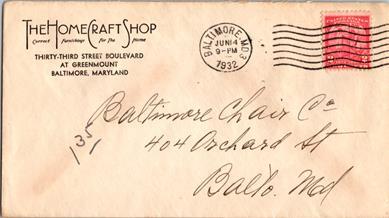 THE HOME CRAFT SHOP
Correct furnishings for the home
THIRTY-THIRD STREET BOULEVARD
AT GREENMOUNT
BALTIMORE, MARYLAND
BALTIMORE, MD. 3
JUN 14
9-PM
1932
2 2
Baltimore Chair Co
404 Orchard St
Balto. Md
135